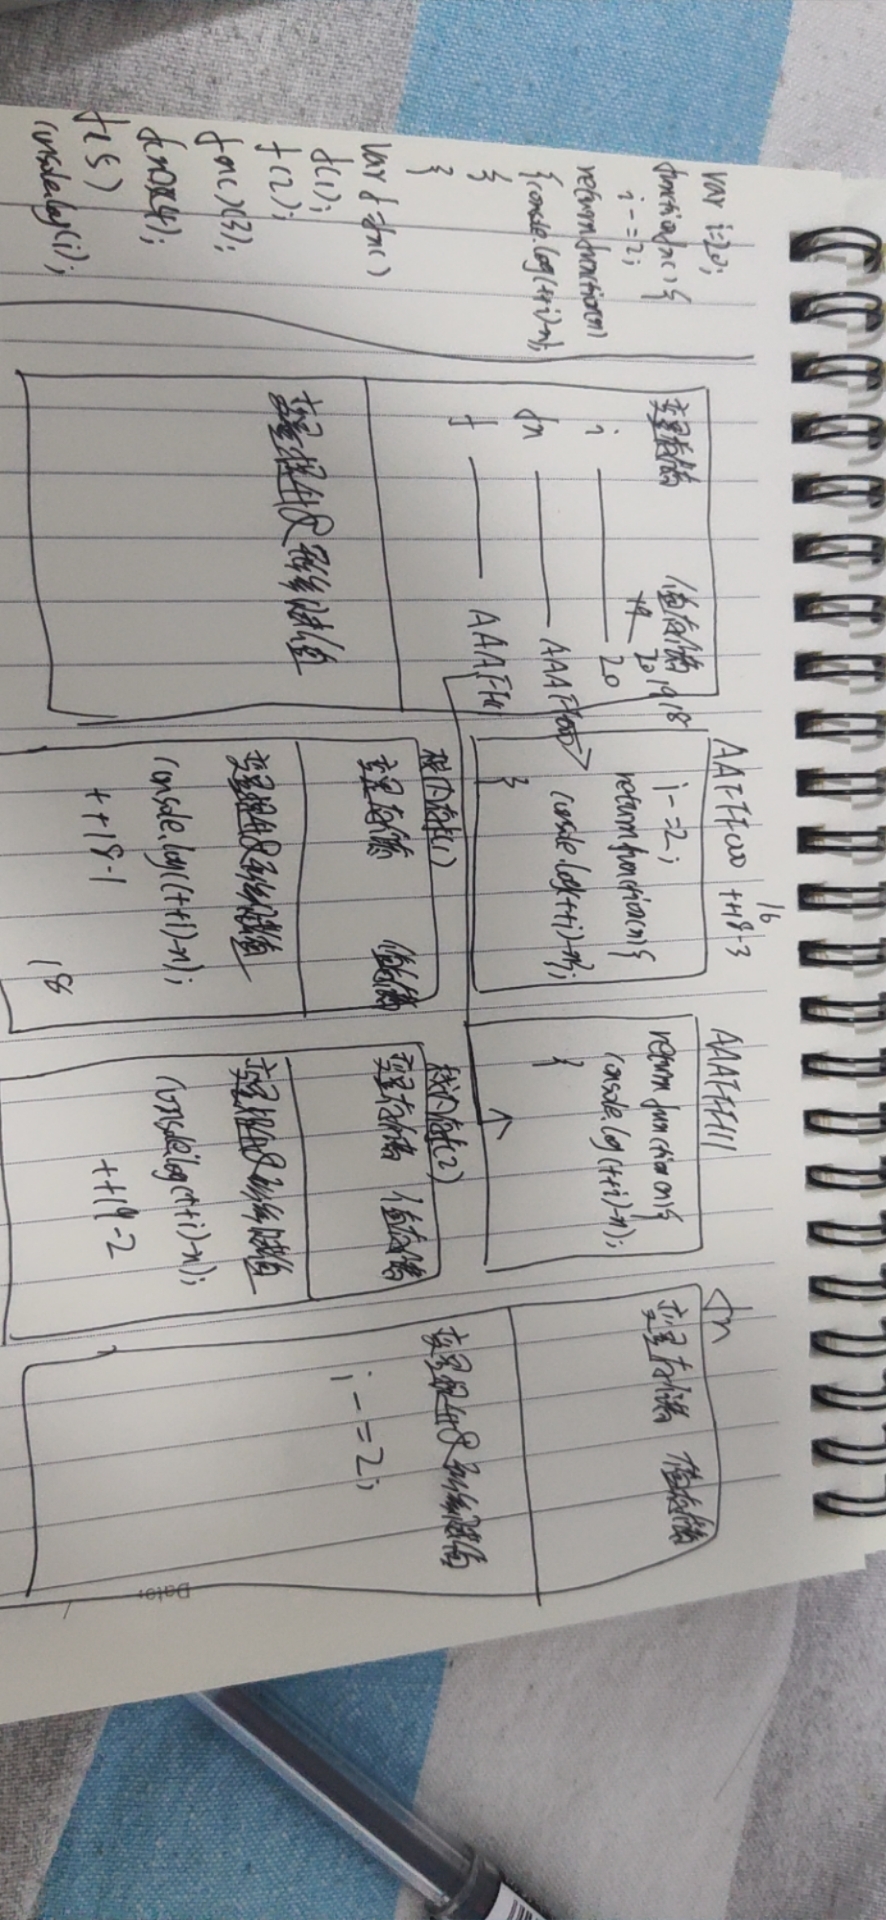 var i=20;
function fn() {
i-=2;
return function(n)
{console.log((++i)-n);
}
}
var f=fn()
f(1);
f(2);
fn()(3);
fn()(4);
f(5)
console.log(i);
变量存储 值存储
19 20 19 18
i 20
fn AAAFFF000
f AAAFFF
变量提升及形参赋值
AAFFF000 ++18-3
16
i-=2;
return function(n){
console.log(++i)-n);
}
AAAFFF111
return function(n){
console.log(++i)-n);
}
栈内存f(1)
变量存储 值存储
变量提升及形参赋值
console.log((++i)-n);
++18-1
18
栈内存f(2)
变量存储 值存储
变量提升及形参赋值
console.log(++i)-n);
++19-2
fn
变量存储 值存储
变量提升及形参赋值
i-=2;
Date: